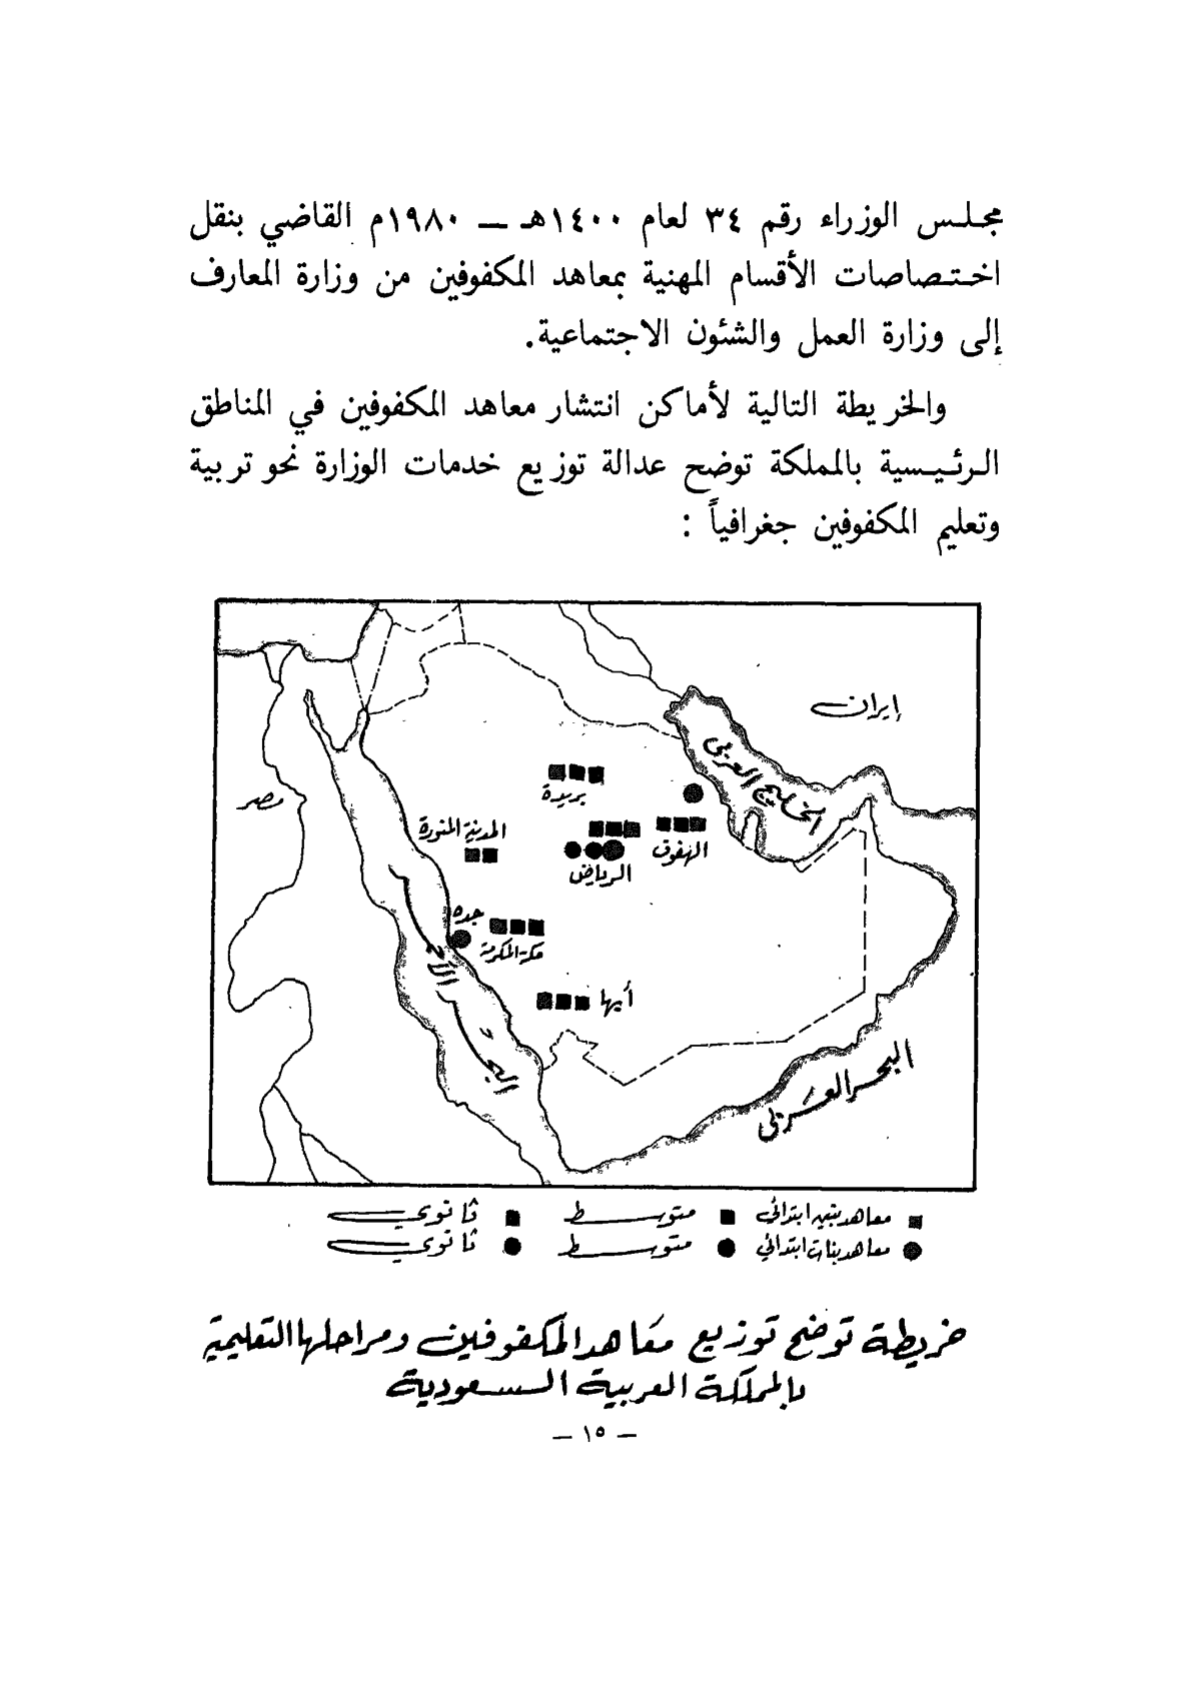 مجلس الوزراء رقم ٣٤ لعام ١٤٠٠هـ — ١٩٨٠م القاضي بنقل
اختصاصات الأقسام المهنية بمعاهد المكفوفين من وزارة المعارف
إلى وزارة العمل والشئون الاجتماعية.
والخريطة التالية لأماكن انتشار معاهد المكفوفين في المناطق
الرئيسية بالمملكة توضح عدالة توزيع خدمات الوزارة نحو تربية
وتعليم المكفوفين جغرافياً :
إيران
الخليج العربي
بريدة
مصر
المدينة المنورة
الهفوف
الرياض
جده
مكة المكرمة
البحر الأحمر
أبها
البحر العربي
معاهد بنين ابتدائي متوسط ثانوي
معاهد بنات ابتدائي متوسط ثانوي
خريطة توضح توزيع معاهد المكفوفين ومراحلها التعليمية
بالمملكة العربية السعودية
— ١٥ —